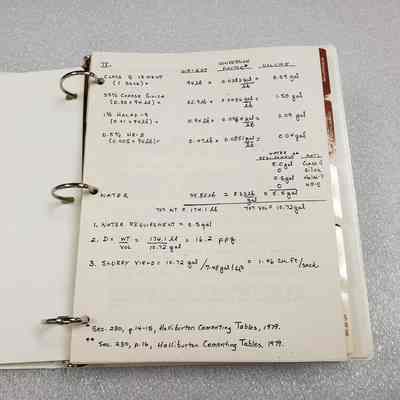 II.
WEIGHT CONVERSION FACTOR* VOLUME
CLASS G CEMENT
(1 SACK) 94 lb x 0.0382 gal/lb = 3.59 gal
35% COARSE SILICA
(0.35 x 94 lb) 32.9 lb x gal/lb = 1.50 gal
1% HALAD-9
(0.01 x 94 lb) 0.94 lb x gal/lb = 0.09 gal
0.5% HR-5
(0.005 x 94 lb) 0.47 lb x gal/lb = 0.04 gal
WATER REQUIREMENT ** MATL
5.0 gal CLASS G
0 SILICA
0.5 gal HALAD-9
0 HR-5
WATER 5.5 gal
TOT WT = 174.1 lb TOT VOL = 10.72 gal
1. WATER REQUIREMENT = 5.5 gal
2. D = WT/VOL = 174.1 lb/10.72 gal = 16.2 ppg
3. SLURRY YIELD = 10.72 gal / 7.48 gal/ft³ = 1.43 cu.ft/sack
* Sec. 230, p.14-15, Halliburton Cementing Tables, 1979.
** Sec. 230, p.16, Halliburton Cementing Tables, 1979.